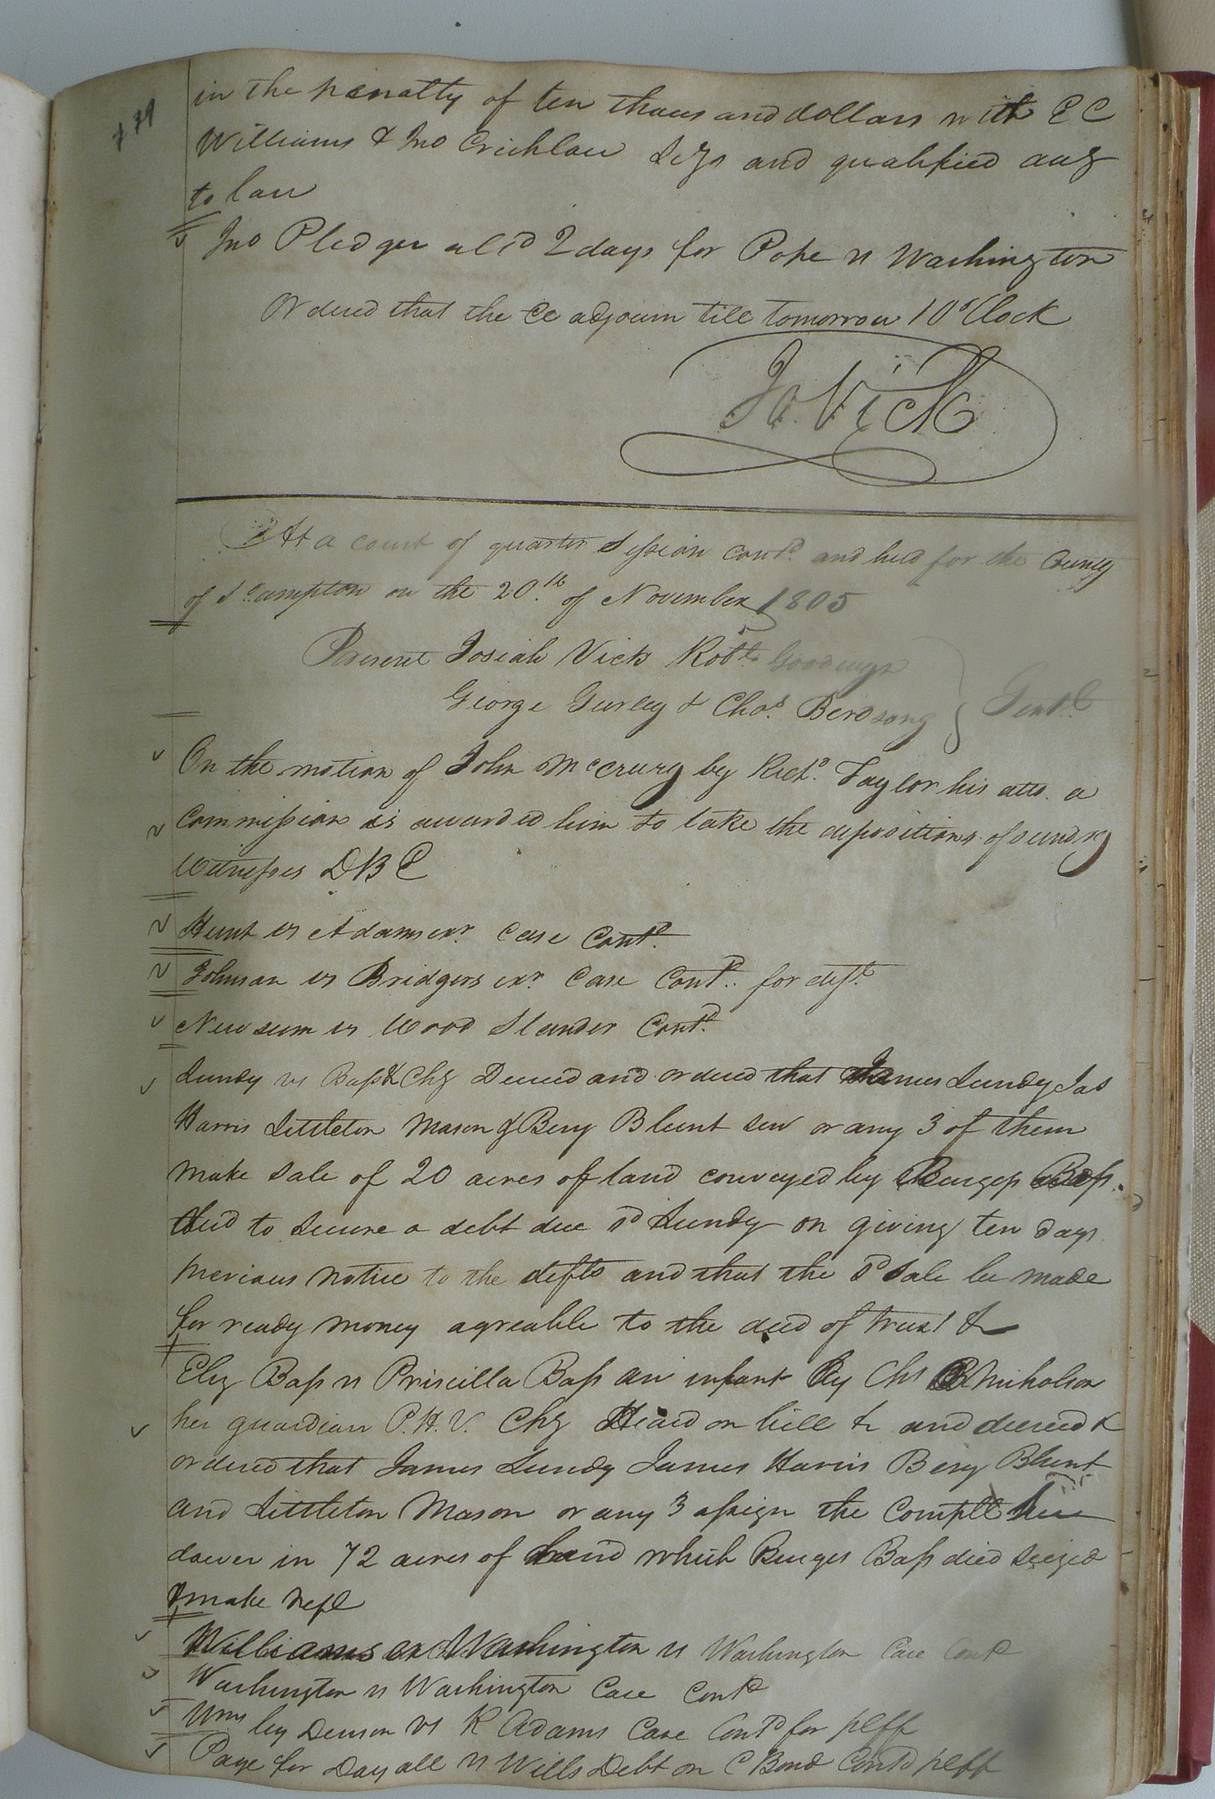 in the penalty of ten thousand dollars with E C
Williams & Jno Crichlow and qualified
to law
Jno Pledger al'd 2 days for Pope vs Washington
Ordered that the Co adjourn till tomorrow 10 oClock
Jo. Vick
At a court of quarter Session cont'd and held for the County
of S'hampton on the 20th of November 1805
Present Josiah Vick Rob't Goodwyn
George Gurley & Cha's Birdsong Gent'l
On the motion of John McCrury by Rich'd Taylor his atto. a
Commission is awarded him to take the depositions of sundry
Witnesses DBE
Hunt vs Adams exr Case Cont'd
Johnson vs Bridgers exr Case Cont'd for deft
Newsum vs Wood Slander Cont'd
Lundy vs Bass & Chy Decreed and ordered that James Lundy Jas
Harris Littleton Mason & Benj Blunt sen or any 3 of them
make sale of 20 acres of land conveyed by Burgess Bass
to secure a debt due s'd Lundy on giving ten days
previous notice to the defts and that the s'd sale be made
for ready money agreable to the deed of trust &
Eliz Bass vs Priscilla Bass an infant By Chs Nicholson
her guardian P.H.V. Chy Heard on bill & and decreed &
ordered that James Lundy James Harris Benj Blunt
and Littleton Mason or any 3 assign the Complt her
dower in 72 acres of land which Burges Bass died seized
& make rept
Williams ex Washington vs Washington Case Cont'd
Washington vs Washington Case Cont'd
Wms by Denson vs R Adams Case Cont'd for pltff
Page for Day all vs Wills Debt on C Bond Cont'd pltff